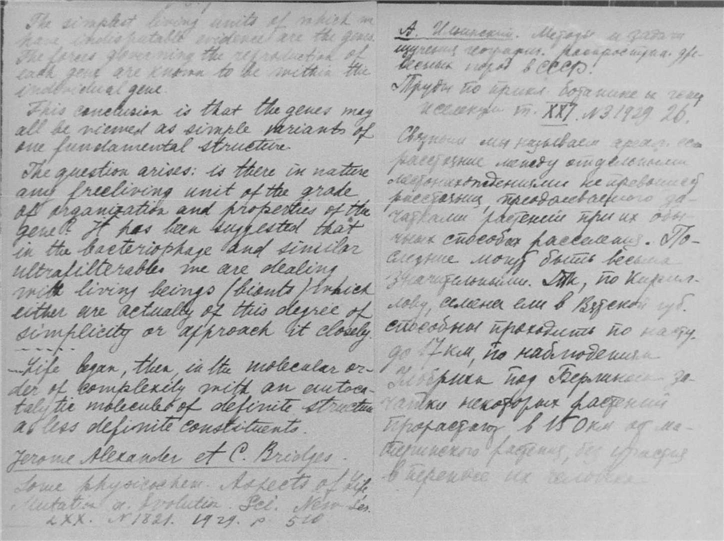 The simplest living units of which we
have indisputable evidence are the genes
The forces governing the reproduction of
each gene are known to be within the
individual gene.
This conclusion is that the genes may
all be viewed as simple variants of
one fundamental structure
The question arises: is there in nature
any freeliving unit of the grade
of organization and properties of the
gene? It has been suggested that
in the bacteriophage and similar
ultrafilterables we are dealing
with living beings (bionts) which
either are actually of this degree of
simplicity or approach it closely.
Life began, then, in the molecular or-
der of complexity with an autoca-
talytic molecule of definite structure
a less definite constituents.
Jerome Alexander et C. Bridges.
Some physicochem. Aspects of Life
Mutation a. Evolution. Sci. New Ser.
LXX. N 1821. 1929. p 510
А. Ильинский. Методы и задачи
изучения географич. распростран. дре-
весных пород в СССР.
Труды по прикл. ботанике и генет
и селекции т. XXI. N3. 1929 26.
Связным мы называем ареал, если
расстояние между отдельными
местонахождениями не превышает
расстояния, преодолеваемого за-
чатками растений при их обы-
чных способах расселения. По-
следние могут быть весьма
значительными. Так, по Кирил-
лову, семена ели в Вятской губ.
способны проходить по насту
до 17 км, по наблюдениям
под Берлином за-
чатки некоторых растений
прорастают в 150 км от ма-
теринского растения, без участия
в переносе их человека